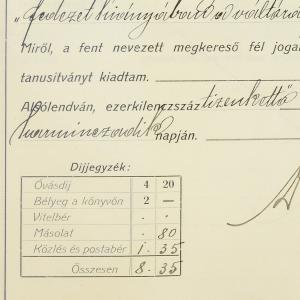 „fedezet hiányában a váltóra
Miről, a fent nevezett megkereső fél joga
tanusítványt kiadtam.
Alsólendván, ezerkilencszáz tizenkettő
harminczadik napján.
Díjjegyzék:
Óvásdíj 4 20
Bélyeg a könyvön 2 —
Vitelbér . .
Másolat . 80
Közlés és postabér 1. 35
Összesen 8. 35